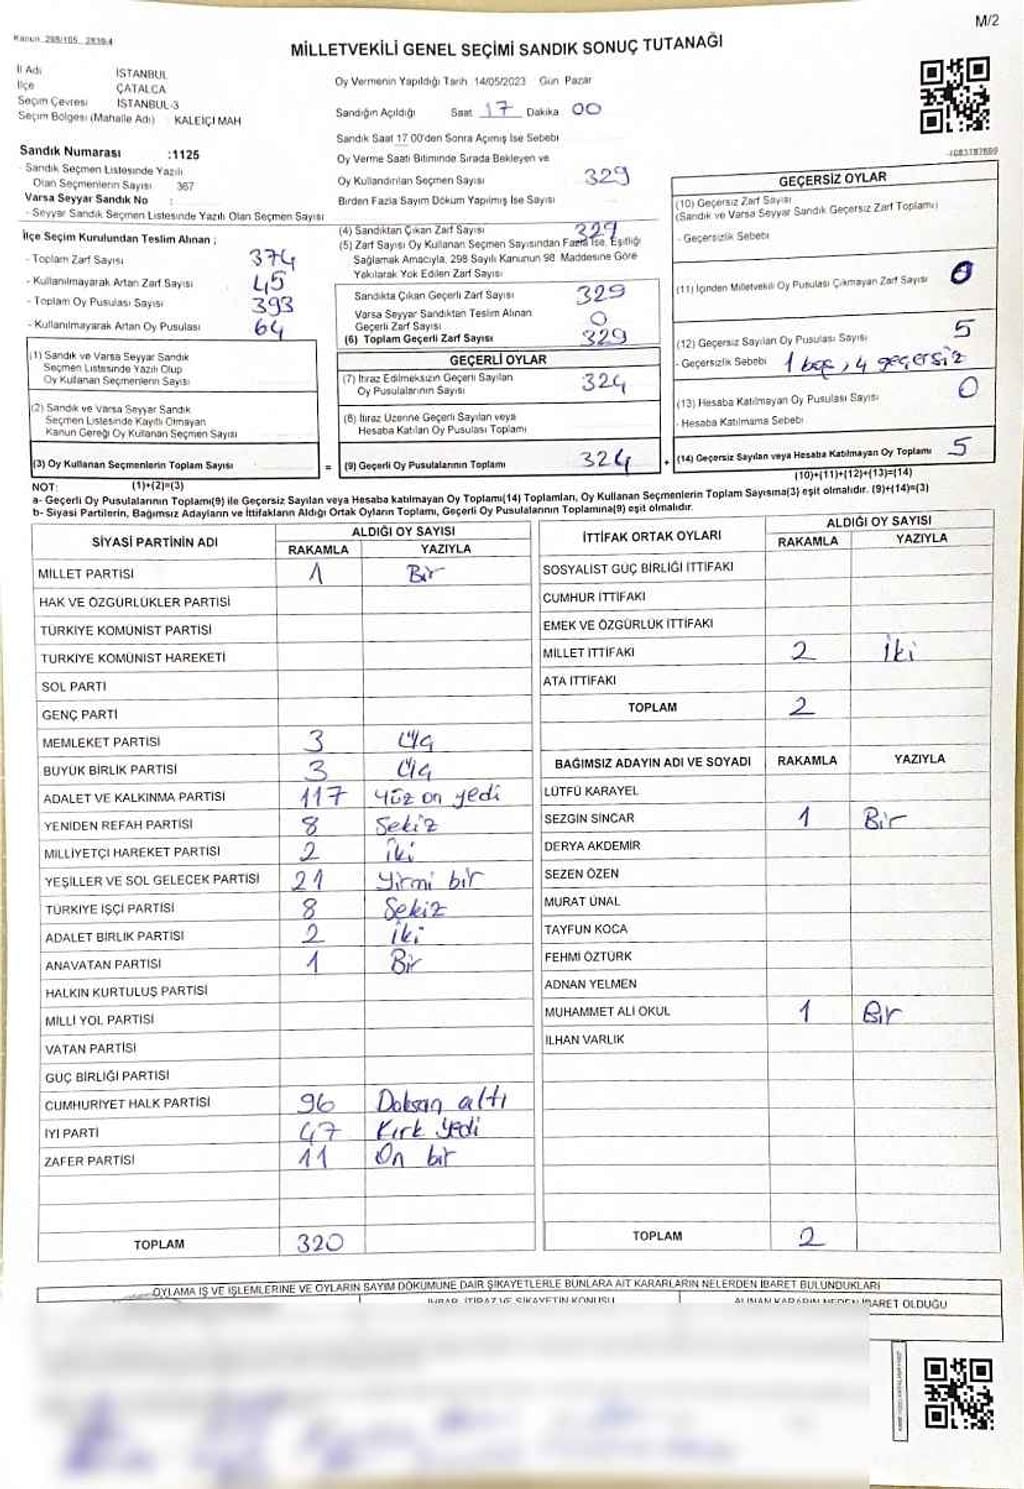 M/2
Kanun 298/105, 2839/4
MİLLETVEKİLİ GENEL SEÇİMİ SANDIK SONUÇ TUTANAĞI
İl Adı İSTANBUL
İlçe ÇATALCA
Seçim Çevresi İSTANBUL-3
Seçim Bölgesi (Mahalle Adı) KALEİÇİ MAH
Sandık Numarası :1125
- Sandık Seçmen Listesinde Yazılı
Olan Seçmenlerin Sayısı 367
Varsa Seyyar Sandık No :
- Seyyar Sandık Seçmen Listesinde Yazılı Olan Seçmen Sayısı
İlçe Seçim Kurulundan Teslim Alınan ;
- Toplam Zarf Sayısı 374
- Kullanılmayarak Artan Zarf Sayısı 45
- Toplam Oy Pusulası Sayısı 393
- Kullanılmayarak Artan Oy Pusulası 64
(1) Sandık ve Varsa Seyyar Sandık
Seçmen Listesinde Yazılı Olup
Oy Kullanan Seçmenlerin Sayısı
(2) Sandık ve Varsa Seyyar Sandık
Seçmen Listesinde Kayıtlı Olmayan
Kanun Gereği Oy Kullanan Seçmen Sayısı
(3) Oy Kullanan Seçmenlerin Toplam Sayısı
Oy Vermenin Yapıldığı Tarih 14/05/2023 Gün Pazar
Sandığın Açıldığı Saat 17 Dakika 00
Sandık Saat 17 00'den Sonra Açımış İse Sebebi
Oy Verme Saati Bitiminde Sırada Bekleyen ve
Oy Kullandırılan Seçmen Sayısı 329
Birden Fazla Sayım Döküm Yapılmış İse Sayısı
(4) Sandıktan Çıkan Zarf Sayısı 329
(5) Zarf Sayısı Oy Kullanan Seçmen Sayısından Fazla İse, Eşitliği
Sağlamak Amacıyla, 298 Sayılı Kanunun 98 Maddesine Göre
Yakılarak Yok Edilen Zarf Sayısı
Sandıkta Çıkan Geçerli Zarf Sayısı 329
Varsa Seyyar Sandıktan Teslim Alınan
Geçerli Zarf Sayısı 0
(6) Toplam Geçerli Zarf Sayısı 329
GEÇERLİ OYLAR
(7) İtiraz Edilmeksizin Geçerli Sayılan
Oy Pusulalarının Sayısı 324
(8) İtiraz Üzerine Geçerli Sayılan veya
Hesaba Katılan Oy Pusulası Toplamı
= (9) Geçerli Oy Pusulalarının Toplamı 324
GEÇERSİZ OYLAR
(10) Geçersiz Zarf Sayısı
(Sandık ve Varsa Seyyar Sandık Geçersiz Zarf Toplamı)
- Geçersizlik Sebebi
(11) İçinden Milletvekili Oy Pusulası Çıkmayan Zarf Sayısı 0
(12) Geçersiz Sayılan Oy Pusulası Sayısı 5
- Geçersizlik Sebebi 1 boş, 4 geçersiz
(13) Hesaba Katılmayan Oy Pusulası Sayısı 0
- Hesaba Katılmama Sebebi
+ (14) Geçersiz Sayılan veya Hesaba Katılmayan Oy Toplamı 5
NOT: (1)+(2)=(3) (10)+(11)+(12)+(13)=(14)
a- Geçerli Oy Pusulalarının Toplamı(9) ile Geçersiz Sayılan veya Hesaba katılmayan Oy Toplamı(14) Toplamları, Oy Kullanan Seçmenlerin Toplam Sayısına(3) eşit olmalıdır. (9)+(14)=(3)
b- Siyasi Partilerin, Bağımsız Adayların ve İttifakların Aldığı Ortak Oyların Toplamı, Geçerli Oy Pusulalarının Toplamına(9) eşit olmalıdır.
SİYASİ PARTİNİN ADI ALDIĞI OY SAYISI
RAKAMLA YAZIYLA
MİLLET PARTİSİ 1 Bir
HAK VE ÖZGÜRLÜKLER PARTİSİ
TÜRKİYE KOMÜNİST PARTİSİ
TÜRKİYE KOMÜNİST HAREKETİ
SOL PARTİ
GENÇ PARTİ
MEMLEKET PARTİSİ 3 Üç
BÜYÜK BİRLİK PARTİSİ 3 Üç
ADALET VE KALKINMA PARTİSİ 117 Yüz on yedi
YENİDEN REFAH PARTİSİ 8 Sekiz
MİLLİYETÇİ HAREKET PARTİSİ 2 İki
YEŞİLLER VE SOL GELECEK PARTİSİ 21 Yirmi bir
TÜRKİYE İŞÇİ PARTİSİ 8 Sekiz
ADALET BİRLİK PARTİSİ 2 İki
ANAVATAN PARTİSİ 1 Bir
HALKIN KURTULUŞ PARTİSİ
MİLLİ YOL PARTİSİ
VATAN PARTİSİ
GÜÇ BİRLİĞİ PARTİSİ
CUMHURİYET HALK PARTİSİ 96 Doksan altı
İYİ PARTİ 47 Kırk yedi
ZAFER PARTİSİ 11 On bir
TOPLAM 320
İTTİFAK ORTAK OYLARI ALDIĞI OY SAYISI
RAKAMLA YAZIYLA
SOSYALİST GÜÇ BİRLİĞİ İTTİFAKI
CUMHUR İTTİFAKI
EMEK VE ÖZGÜRLÜK İTTİFAKI
MİLLET İTTİFAKI 2 İki
ATA İTTİFAKI
TOPLAM 2
BAĞIMSIZ ADAYIN ADI VE SOYADI RAKAMLA YAZIYLA
LÜTFÜ KARAYEL
SEZGİN SİNCAR 1 Bir
DERYA AKDEMİR
SEZEN ÖZEN
MURAT ÜNAL
TAYFUN KOCA
FEHMİ ÖZTÜRK
ADNAN YELMEN
MUHAMMET ALİ OKUL 1 Bir
İLHAN VARLIK
TOPLAM 2
OYLAMA İŞ VE İŞLEMLERİNE VE OYLARIN SAYIM DÖKÜMÜNE DAİR ŞİKAYETLERLE BUNLARA AİT KARARLARIN NELERDEN İBARET BULUNDUKLARI
İHBAR, İTİRAZ VE ŞİKAYETİN KONUSU ALINAN KARARIN NEDEN İBARET OLDUĞU